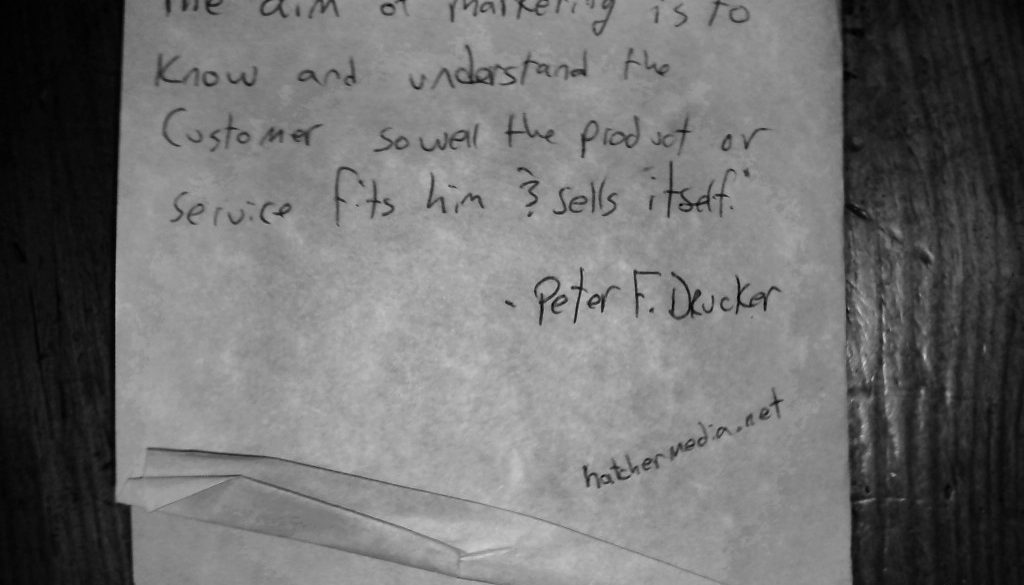 The aim of marketing is to
Know and understand the
Customer so well the product or
service fits him & sells itself."
- Peter F. Drucker
hatchermedia.net